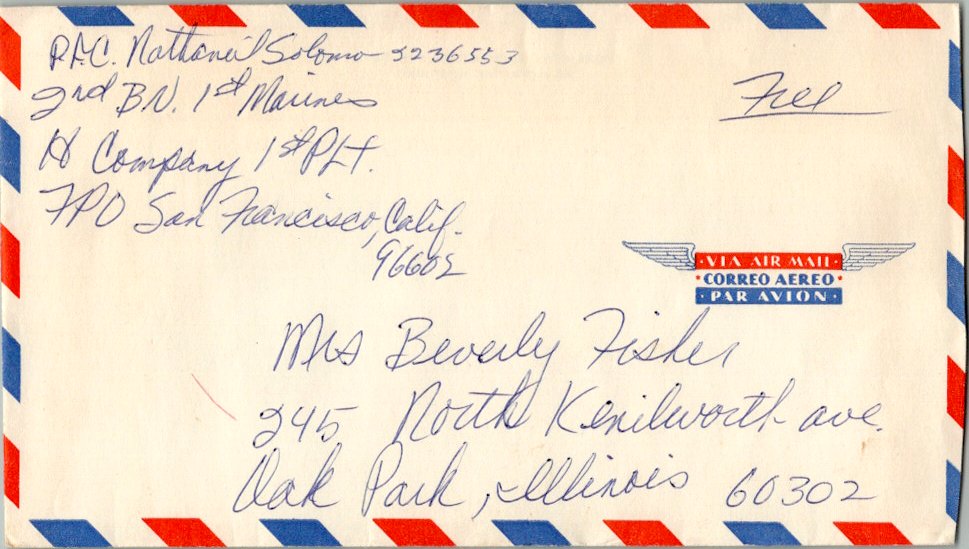 P.F.C. Nathaneil Solomon 2236553
2nd B.N. 1st Marines
H Company 1st PLt.
FPO San Francisco, Calif.
96602
Free
VIA AIR MAIL
CORREO AEREO
PAR AVION
Mrs Beverly Fisher
245 North Kenilworth ave.
Oak Park, Illinois 60302